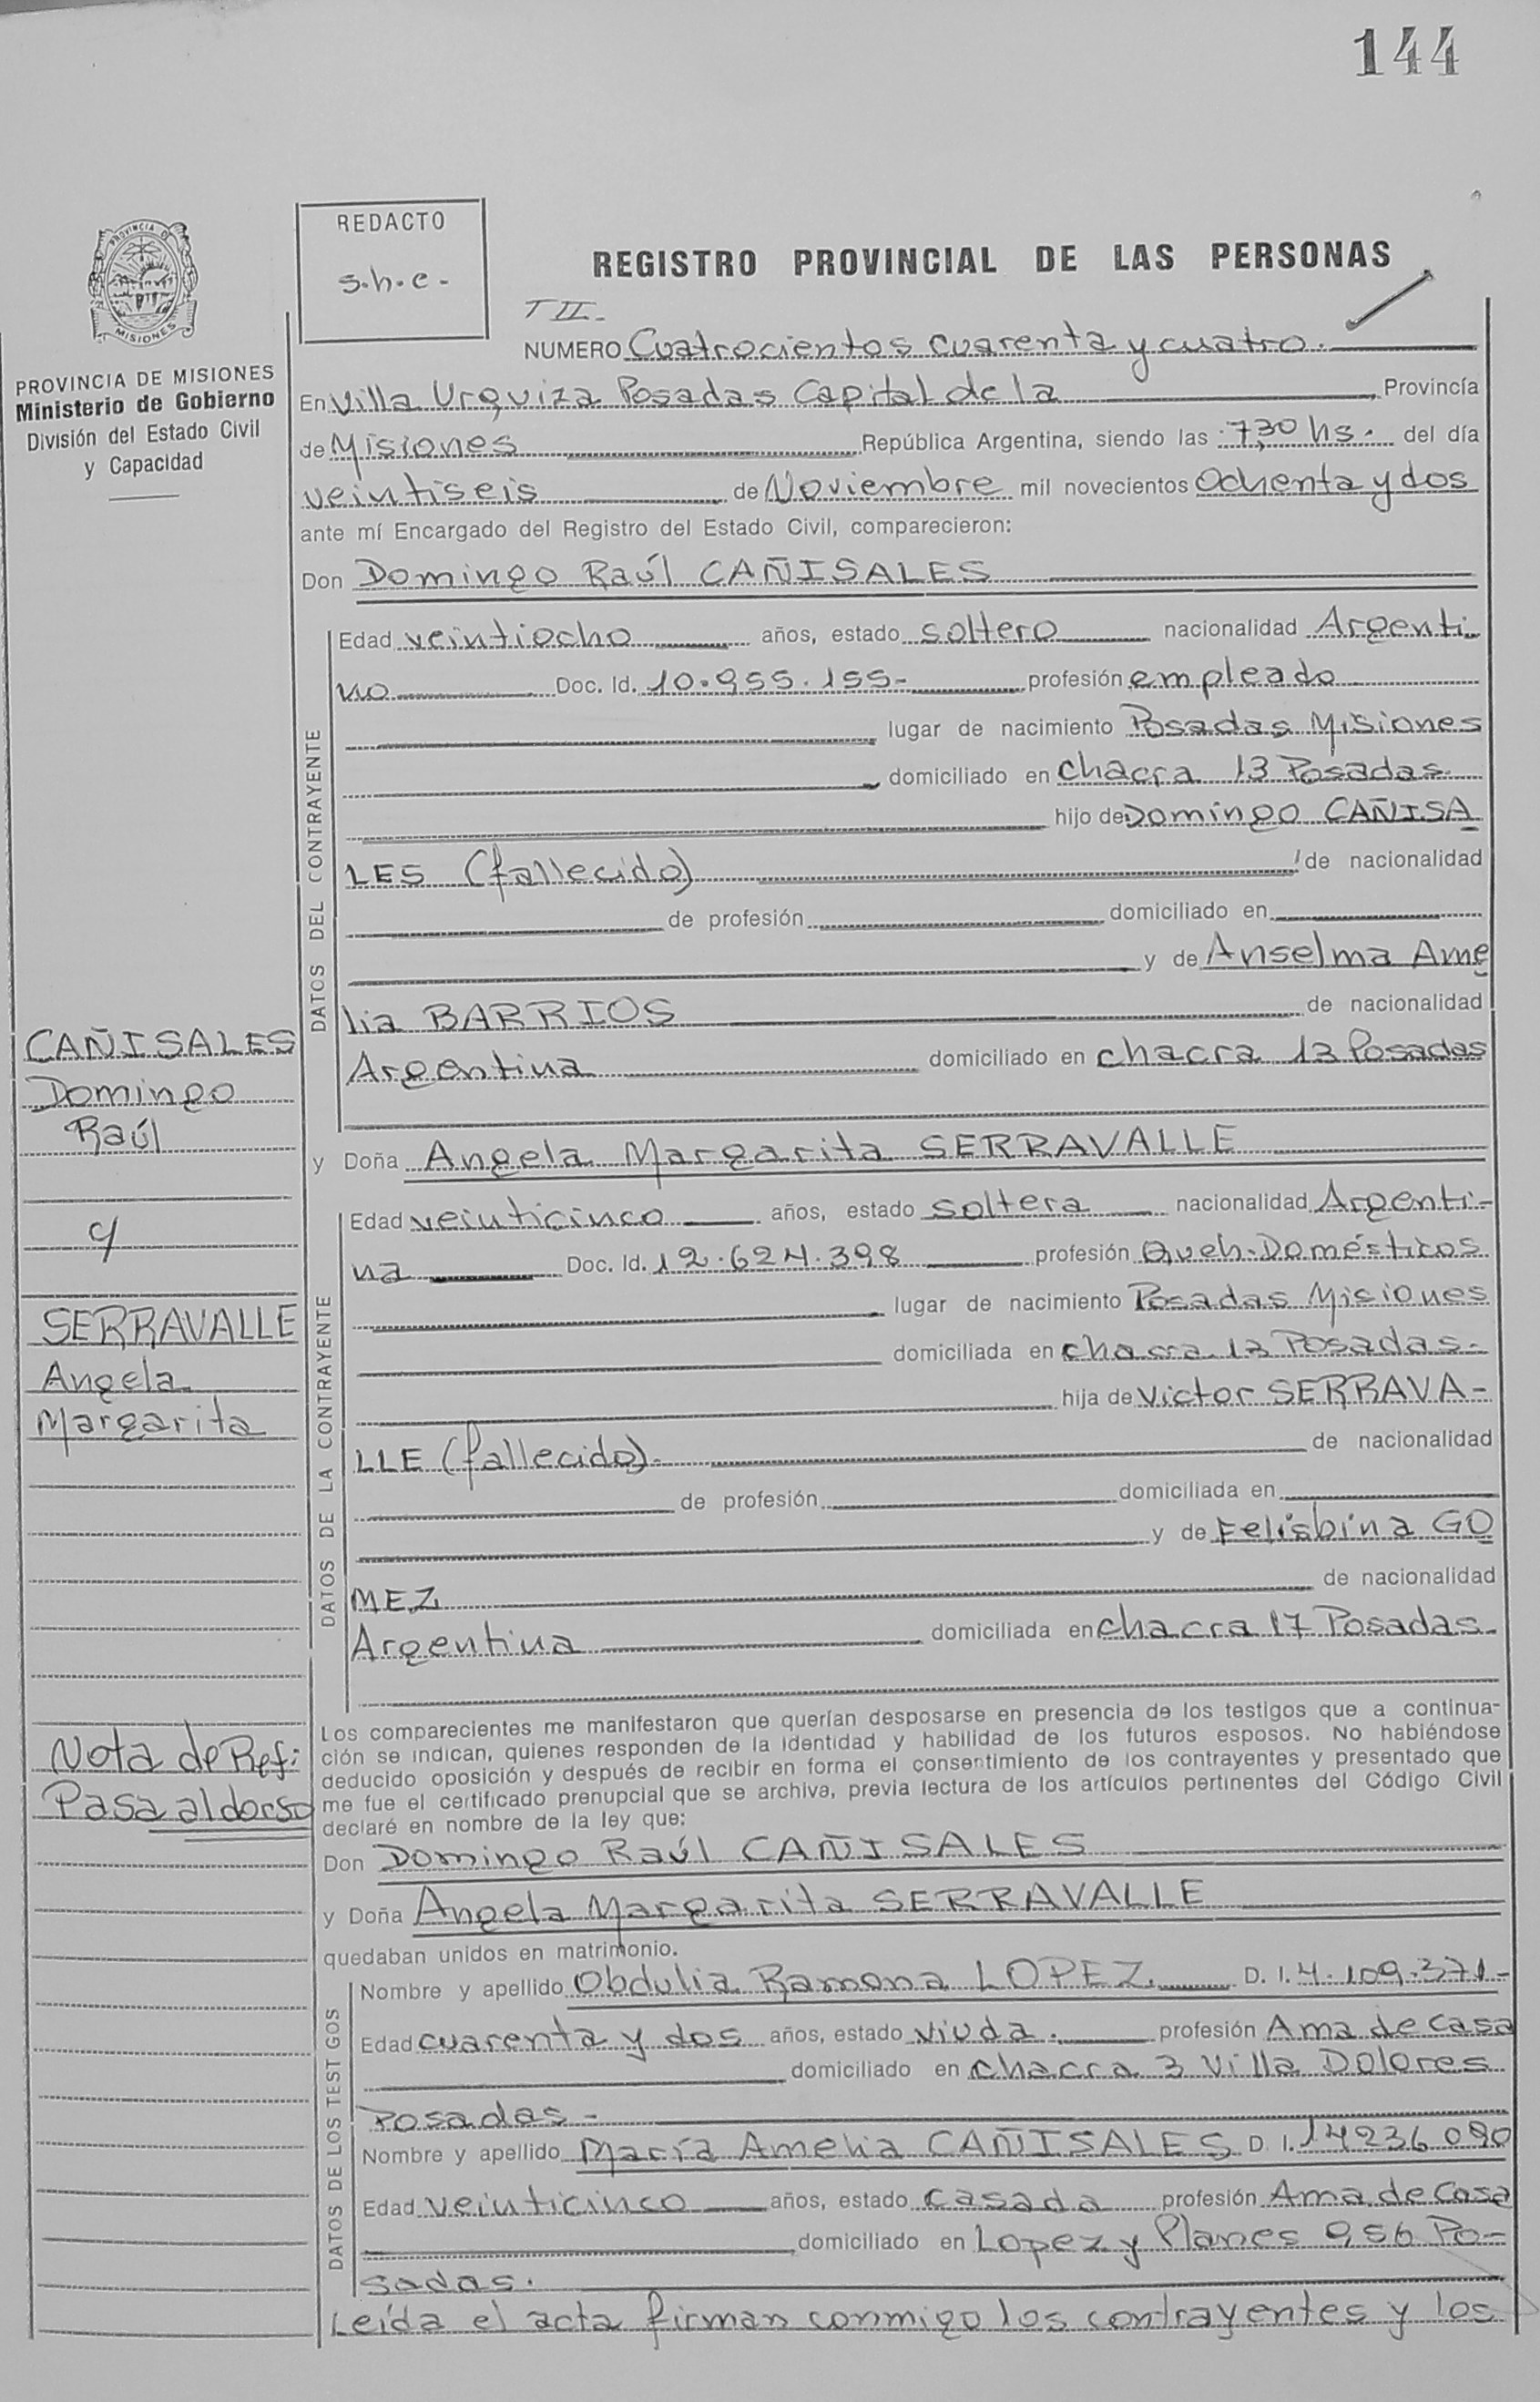 144
REDACTO
s.h.e.-
REGISTRO PROVINCIAL DE LAS PERSONAS
T II-
NUMERO Cuatrocientos cuarenta y cuatro.
PROVINCIA DE MISIONES
Ministerio de Gobierno
División del Estado Civil
y Capacidad
En Villa Urquiza Posadas Capital de la Provincía
de Misiones República Argentina, siendo las 7,30 hs. del día
veintiseis de Noviembre mil novecientos Ochenta y dos
ante mí Encargado del Registro del Estado Civil, comparecieron:
Don Domingo Raúl CAÑISALES
DATOS DEL CONTRAYENTE
Edad veintiocho años, estado soltero nacionalidad Argenti-
no Doc. Id. 10.955.155- profesión empleado
lugar de nacimiento Posadas Misiones
domiciliado en chacra 13 Posadas
hijo de Domingo CAÑISA
LES (fallecido) de nacionalidad
de profesión domiciliado en
y de Anselma Ame
lia BARRIOS de nacionalidad
Argentina domiciliado en chacra 13 Posadas
CAÑISALES
Domingo
Raúl
y
SERRAVALLE
Angela
Margarita
y Doña Angela Margarita SERRAVALLE
DATOS DE LA CONTRAYENTE
Edad veinticinco años, estado soltera nacionalidad Argenti-
na Doc. Id. 12.624.398 profesión Queh-Domésticos
lugar de nacimiento Posadas Misiones
domiciliada en chacra 13 Posadas-
hija de Victor SERRAVA-
LLE (fallecido)- de nacionalidad
de profesión domiciliada en
y de Felisbina GO
MEZ de nacionalidad
Argentina domiciliada en chacra 17 Posadas-
Nota de Ref:
Pasa al dorso
Los comparecientes me manifestaron que querían desposarse en presencia de los testigos que a continua-
ción se indican, quienes responden de la identidad y habilidad de los futuros esposos. No habiéndose
deducido oposición y después de recibir en forma el consentimiento de los contrayentes y presentado que
me fue el certificado prenupcial que se archiva, previa lectura de los artículos pertinentes del Código Civil
declaré en nombre de la ley que:
Don Domingo Raúl CAÑISALES
y Doña Angela Margarita SERRAVALLE
quedaban unidos en matrimonio.
DATOS DE LOS TESTIGOS
Nombre y apellido Obdulia Ramona LOPEZ D. I. 4.109.371-
Edad cuarenta y dos años, estado viuda. profesión Ama de casa
domiciliado en chacra 3 Villa Dolores
Posadas-
Nombre y apellido María Amelia CAÑISALES D I. 14236 090
Edad veinticinco años, estado casada profesión Ama de Casa
domiciliado en Lopez y Planes 956 Po-
sadas.
Leída el acta firman conmigo los contrayentes y los